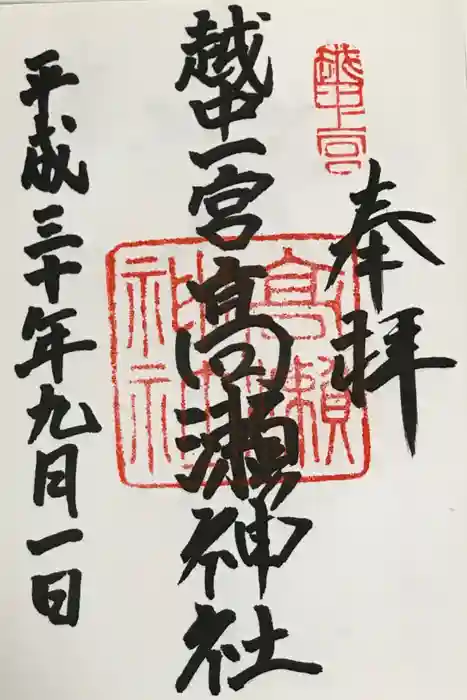 奉拝
越中一宮
越中一宮髙瀬神社
髙瀬神社
平成三十年九月一日